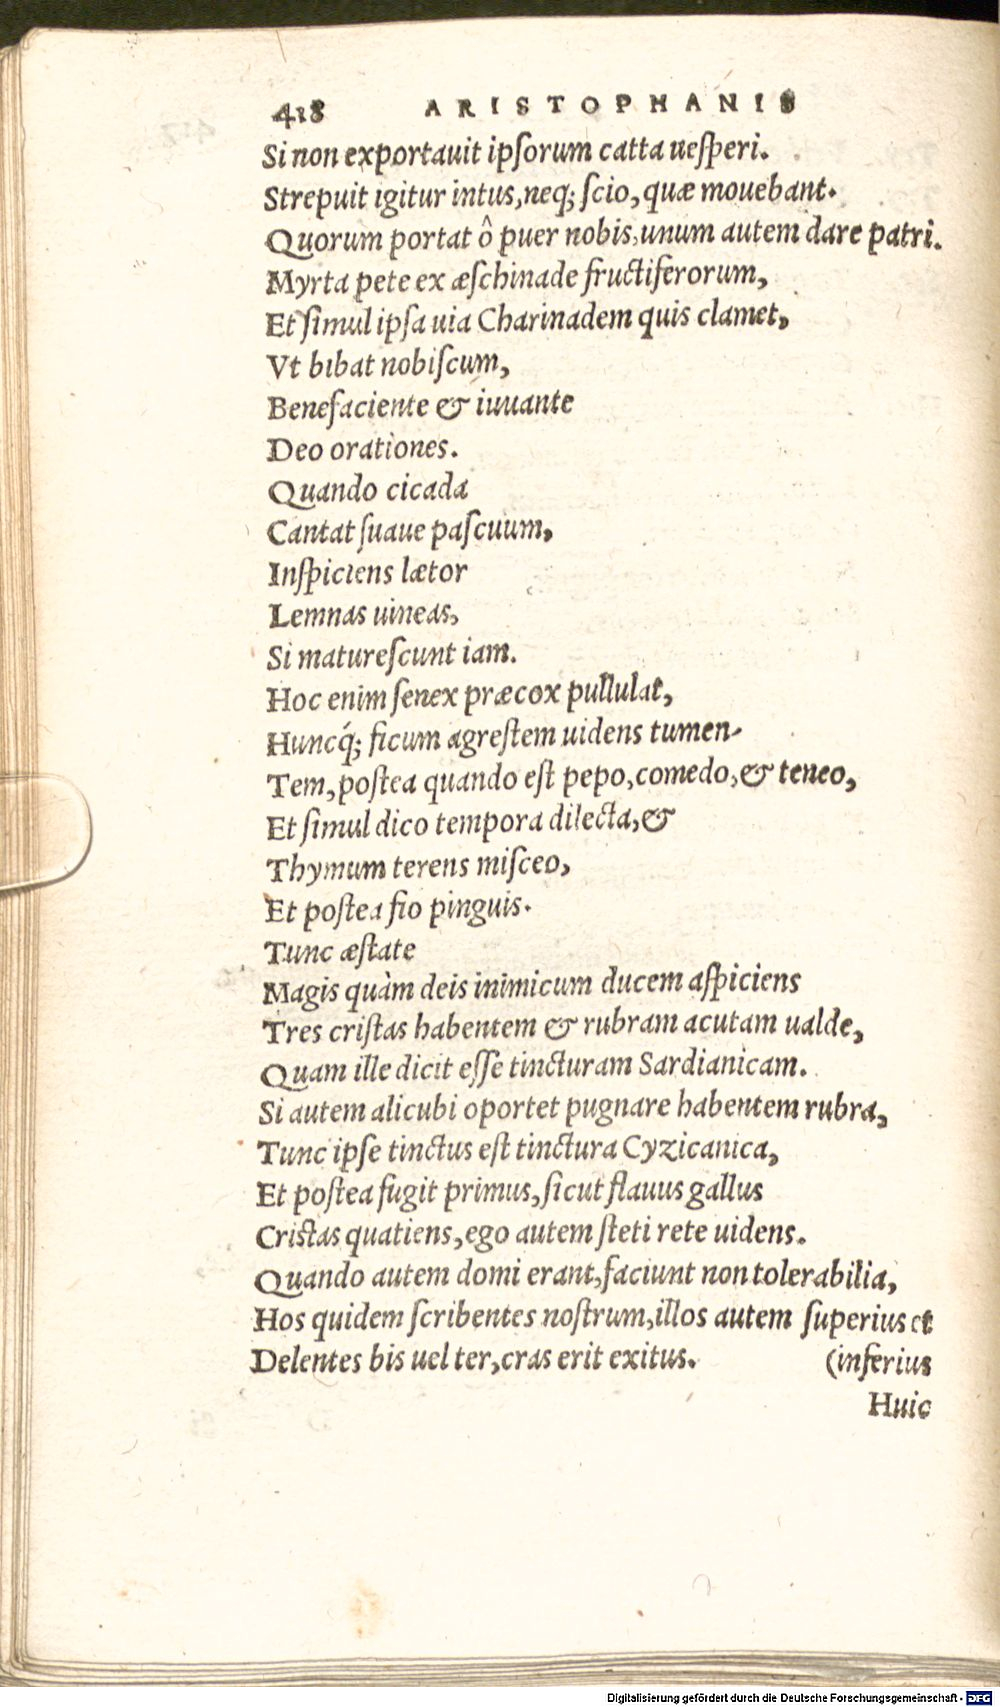 418 ARISTOPHANIS
Si non exportauit ipſorum catta ueſperi.
Strepuit igitur intus, neq; ſcio, quæ mouebant.
Quorum portat ô puer nobis, unum autem dare patri.
Myrta pete ex æſchinade fructiferorum,
Et ſimul ipſa uia Charinadem quis clamet,
Vt bibat nobiſcum,
Benefaciente & iuuante
Deo orationes.
Quando cicada
Cantat ſuaue paſcuum,
Inſpiciens lætor
Lemnas uineas,
Si matureſcunt iam.
Hoc enim ſenex præcox pullulat,
Huncq́; ficum agreſtem uidens tumen-
Tem, poſtea quando eſt pepo, comedo, & teneo,
Et ſimul dico tempora dilecta, &
Thymum terens miſceo,
Et poſtea fio pinguis.
Tunc æſtate
Magis quàm deis inimicum ducem aſpiciens
Tres criſtas habentem & rubram acutam ualde,
Quam ille dicit eſſe tincturam Sardianicam.
Si autem alicubi oportet pugnare habentem rubra,
Tunc ipſe tinctus eſt tinctura Cyzicanica,
Et poſtea fugit primus, ſicut flauus gallus
Criſtas quatiens, ego autem ſteti rete uidens.
Quando autem domi erant, faciunt non tolerabilia,
Hos quidem ſcribentes noſtrum, illos autem ſuperius et
Delentes bis uel ter, cras erit exitus. (inferius
Huic
Digitalisierung gefördert durch die Deutsche Forschungsgemeinschaft - DFG